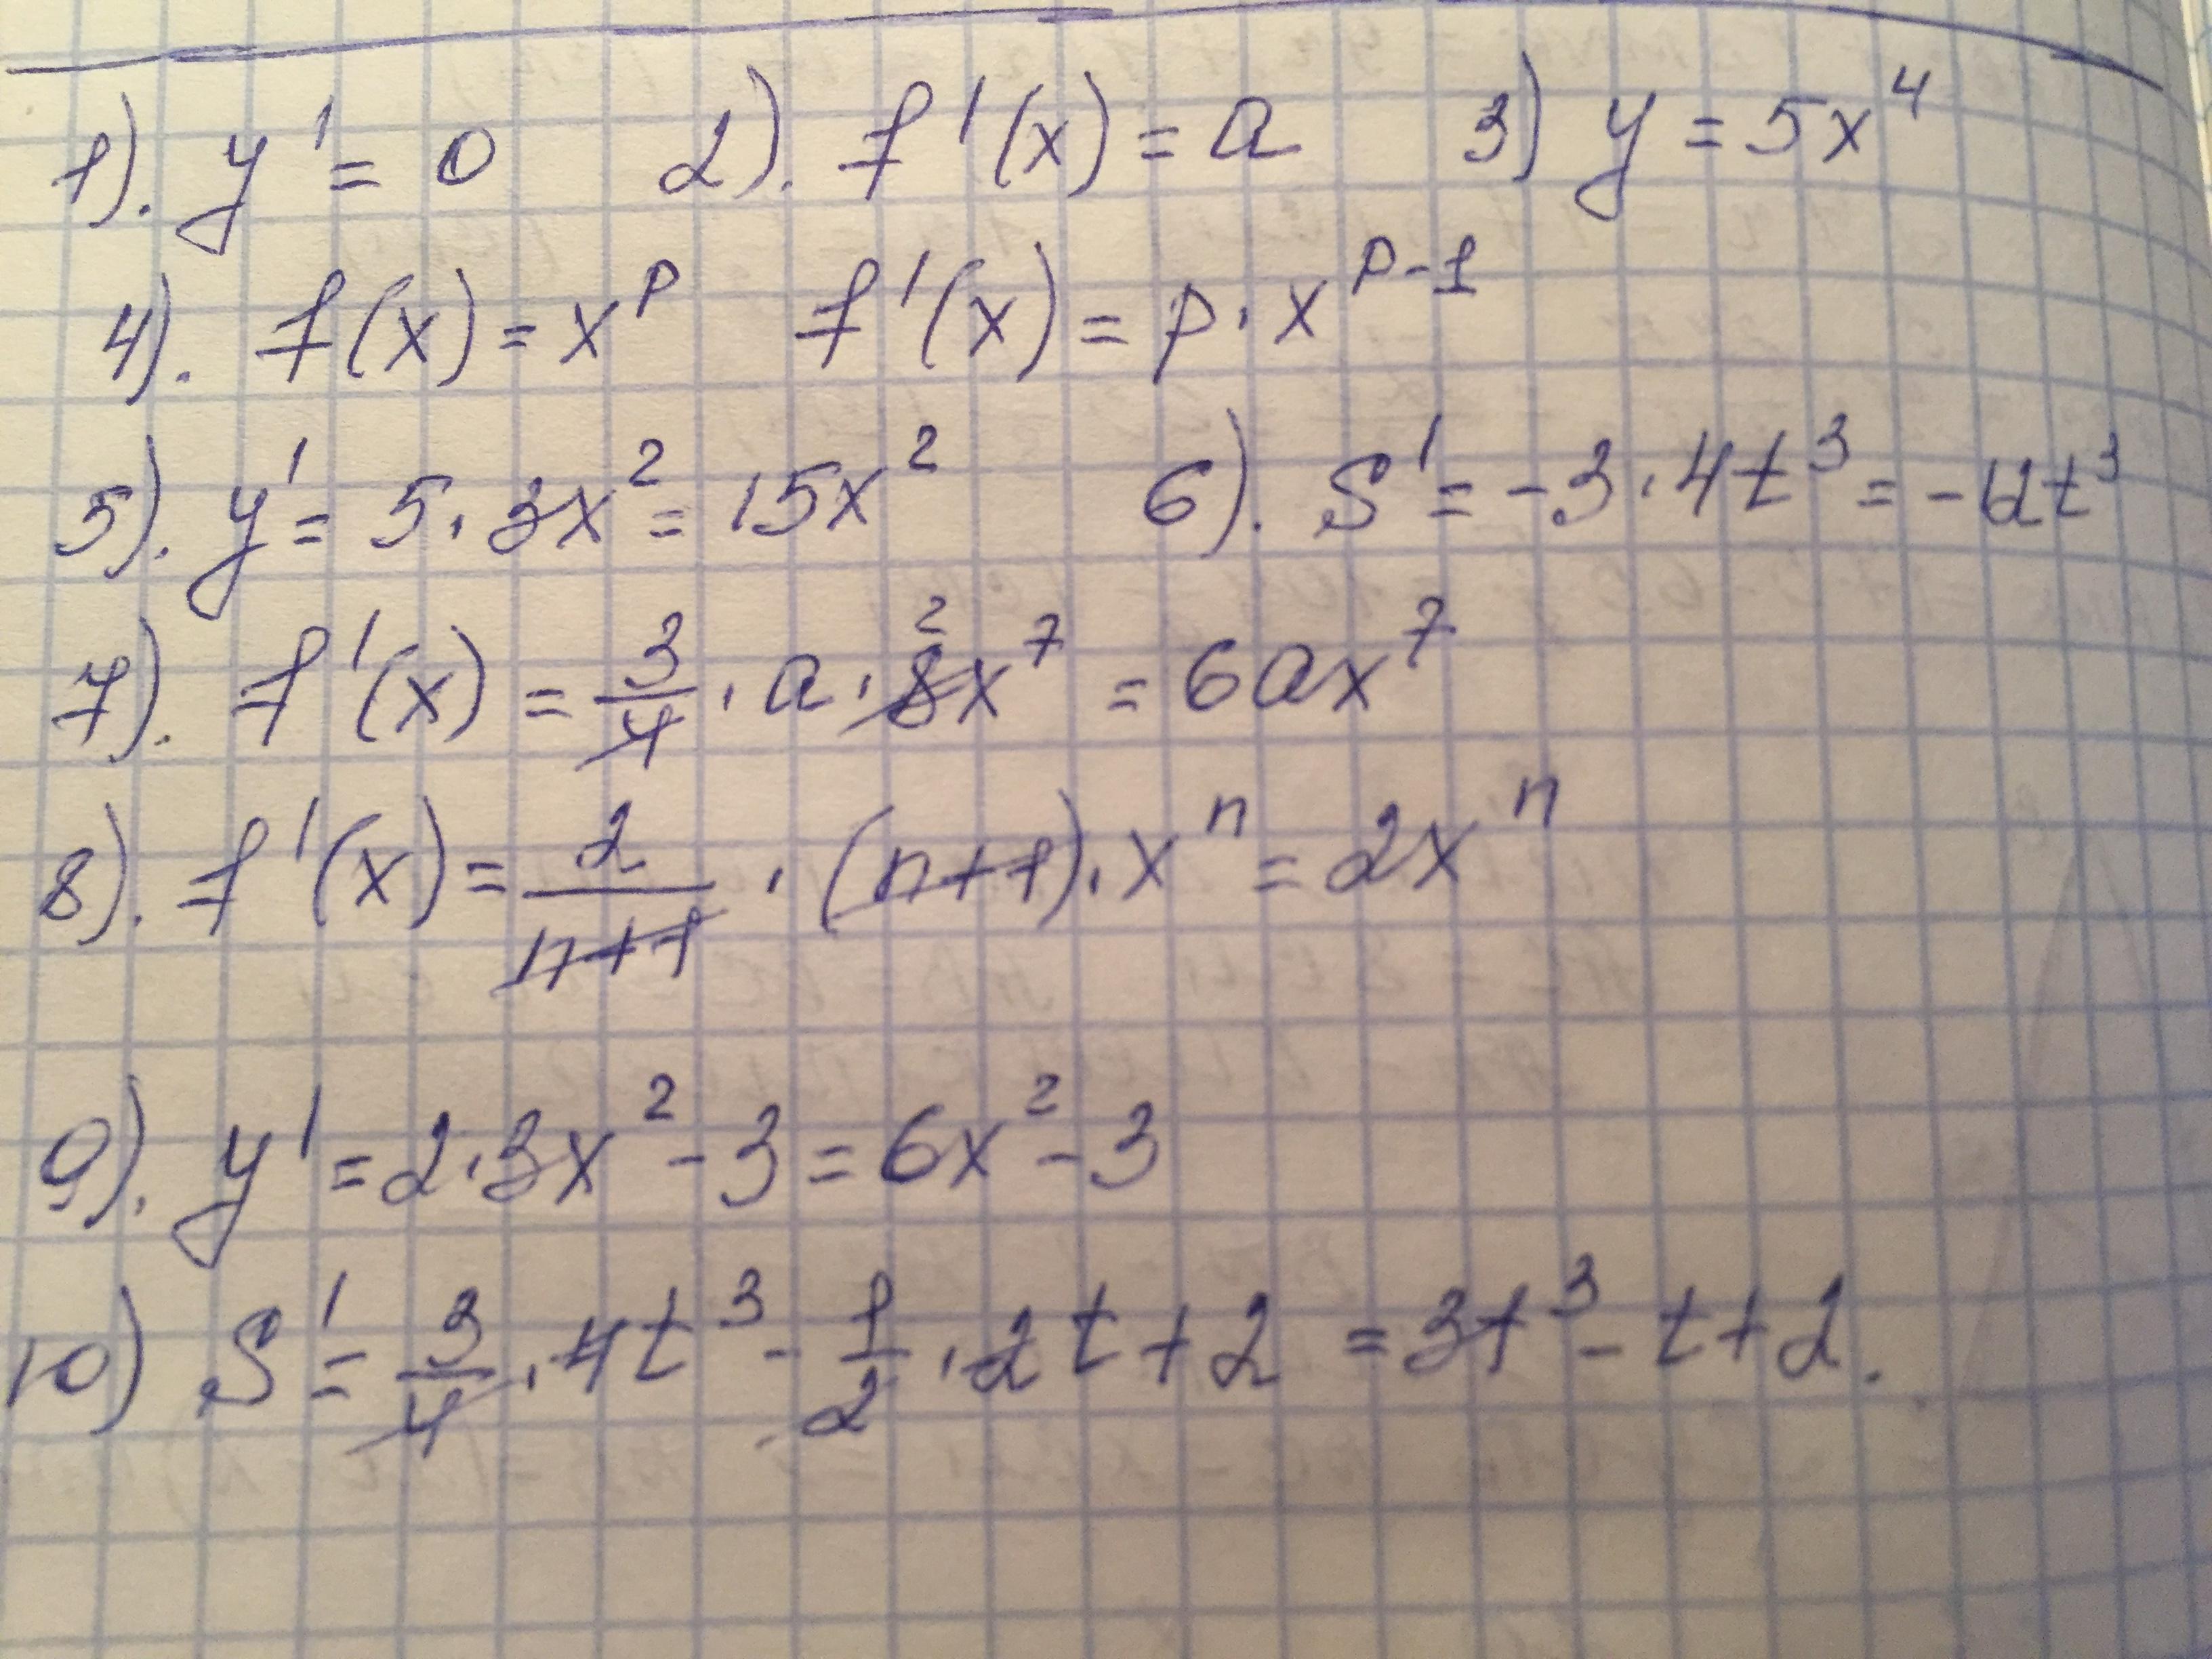 1). y' = 0 2). f'(x) = a 3) y = 5x⁴
4). f(x) = x^p f'(x) = p · x^(p-1)
5). y' = 5 · 3x² = 15x² 6). S' = -3 · 4t³ = -12t³
7). f'(x) = 3/4 · a · 8x⁷ = 6ax⁷
2
8). f'(x) = 2/(n+1) · (n+1) · xⁿ = 2xⁿ
9). y' = 2 · 3x² - 3 = 6x² - 3
10) S' = 3/4 · 4t³ - 1/2 · 2t + 2 = 3t³ - t + 2.